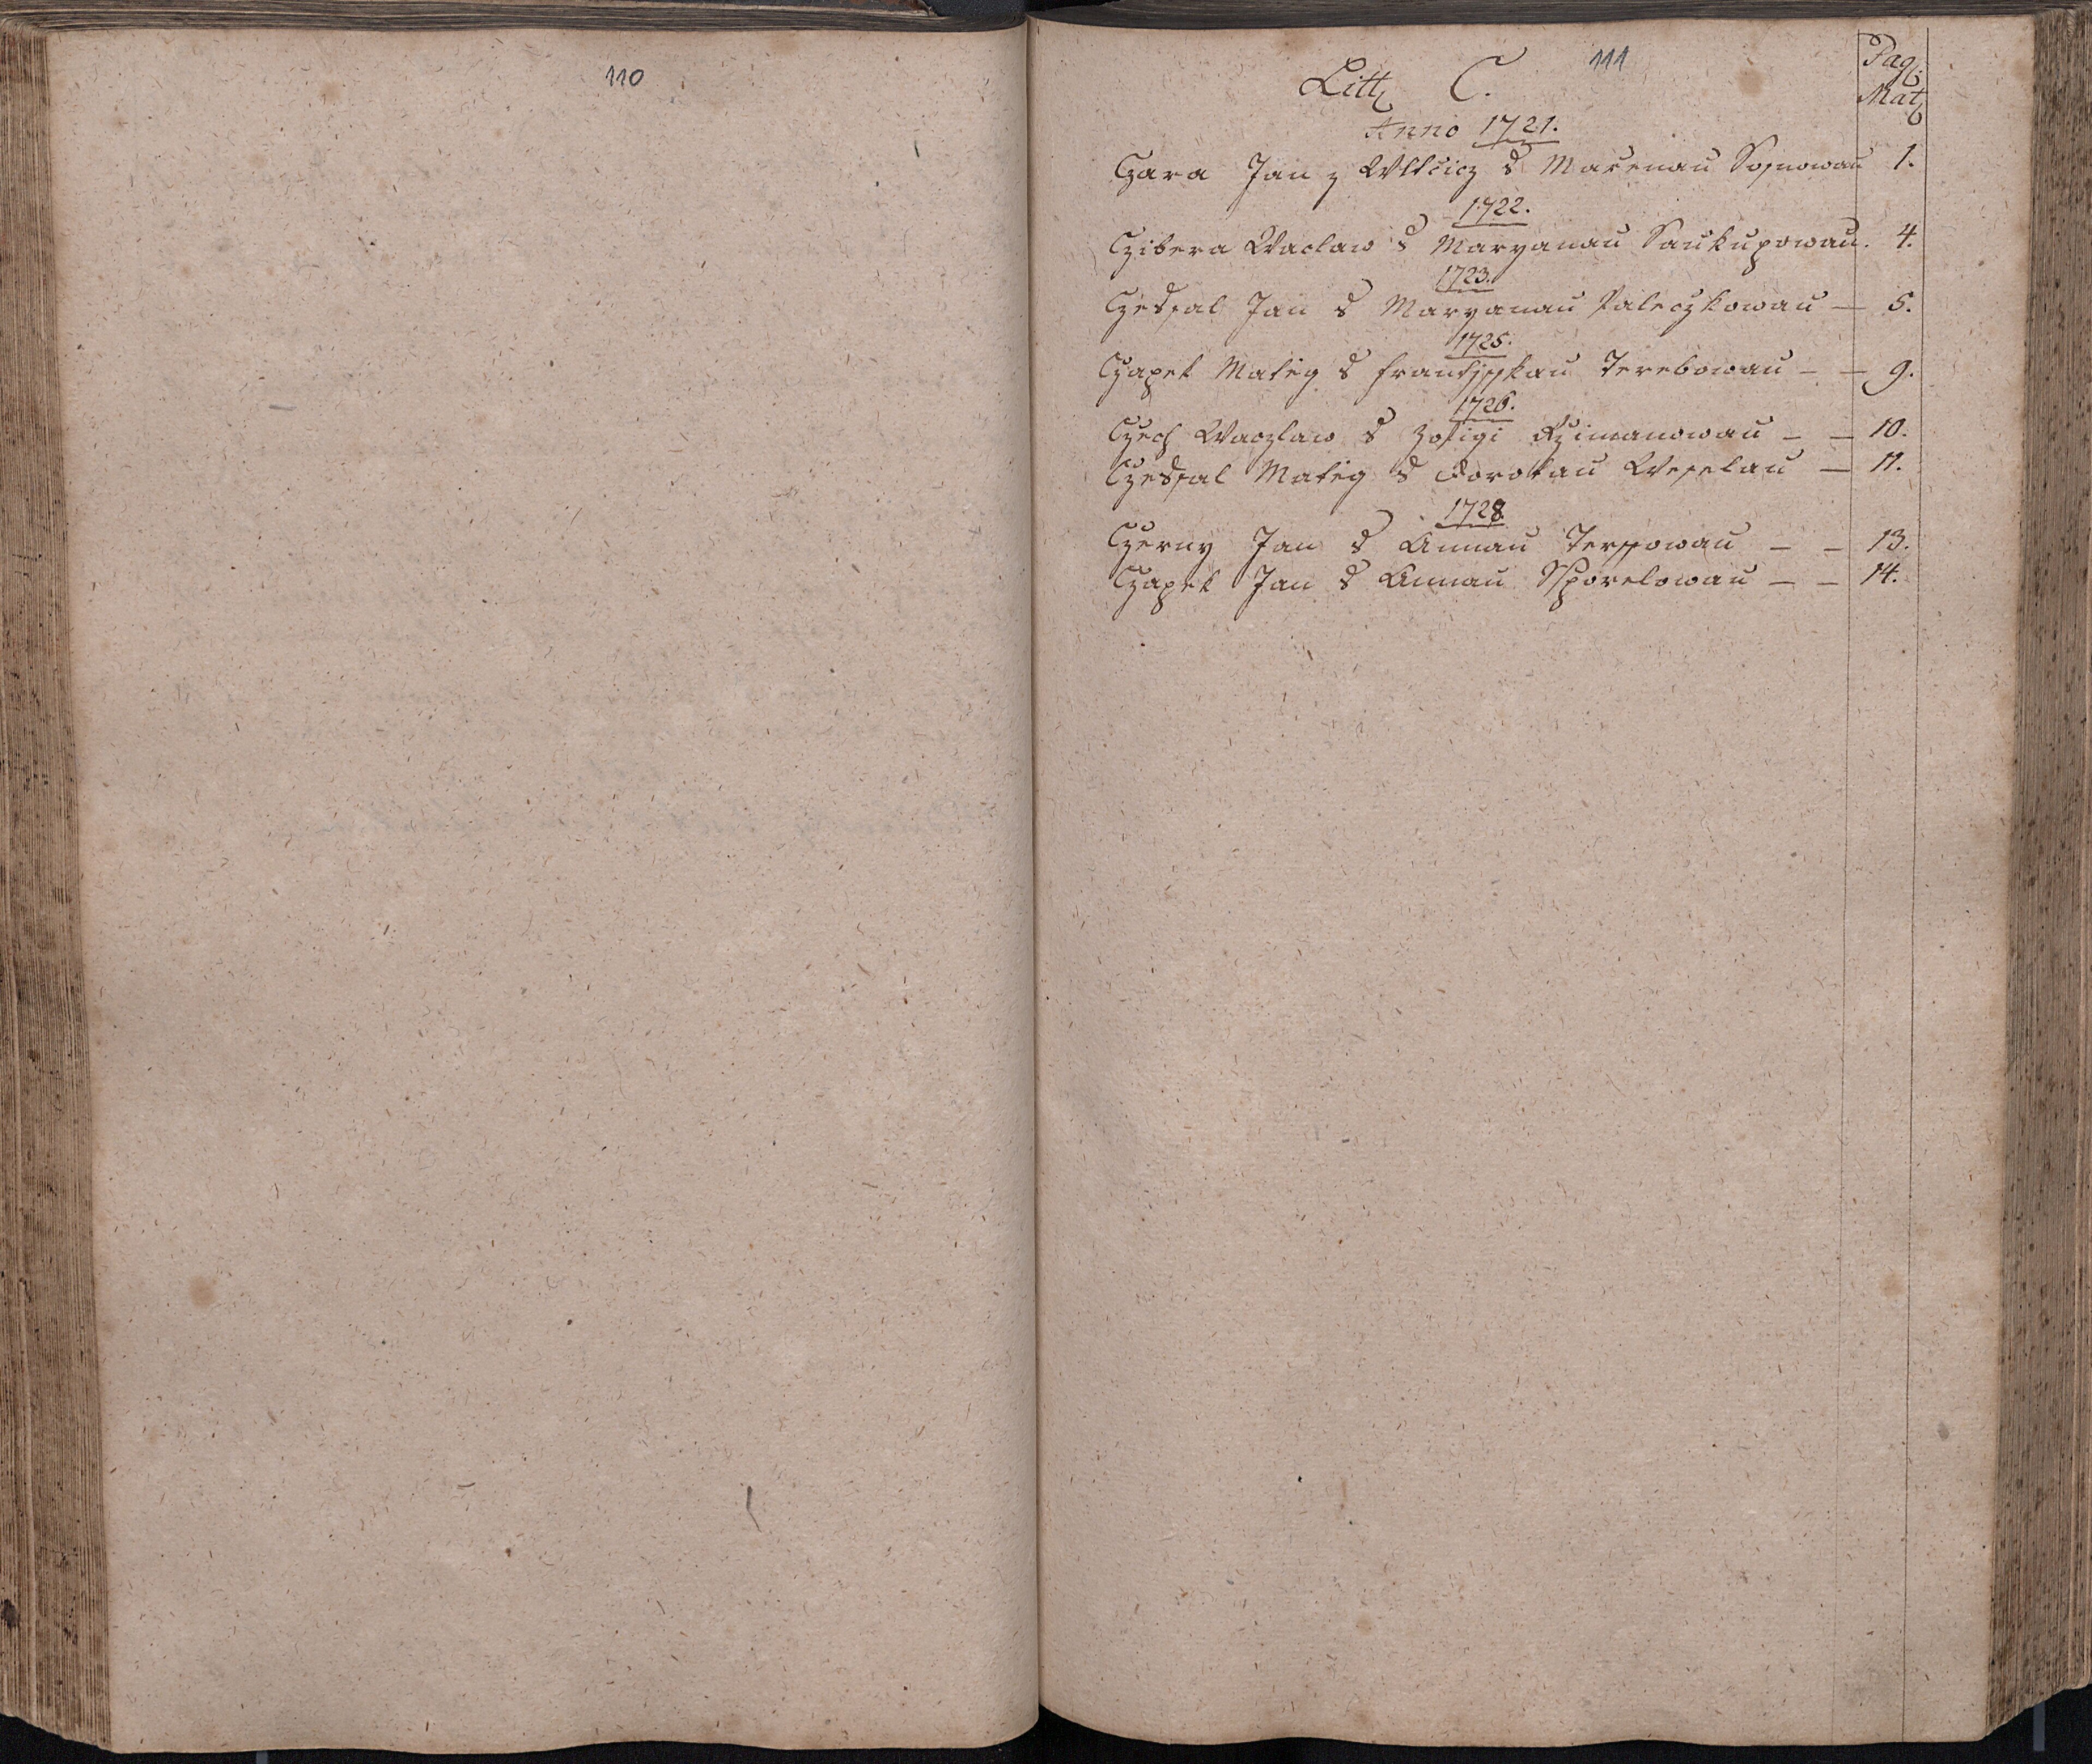 110
111
Litt. C.
Pag.
Mat.
Anno 1721.
Czara Jan z Wlkcicz s Mařenau Sosnowau 1.
1722.
Czibera Waclaw s Maryanau Saukupowau. 4.
1723.
Czedjal Jan s Maryanau Paleczkowau — 5.
1725.
Czapek Matieg s Frantisskau Terebowau — — 9.
1726.
Czech Waczlaw s Zofigi Rzimanowau — — 10.
Matieg s Dorotau Weselau — 11.
1728
Czerny Jan s Annau — — 13.
Czapek Jan s Annau Sporelowau — — 14.